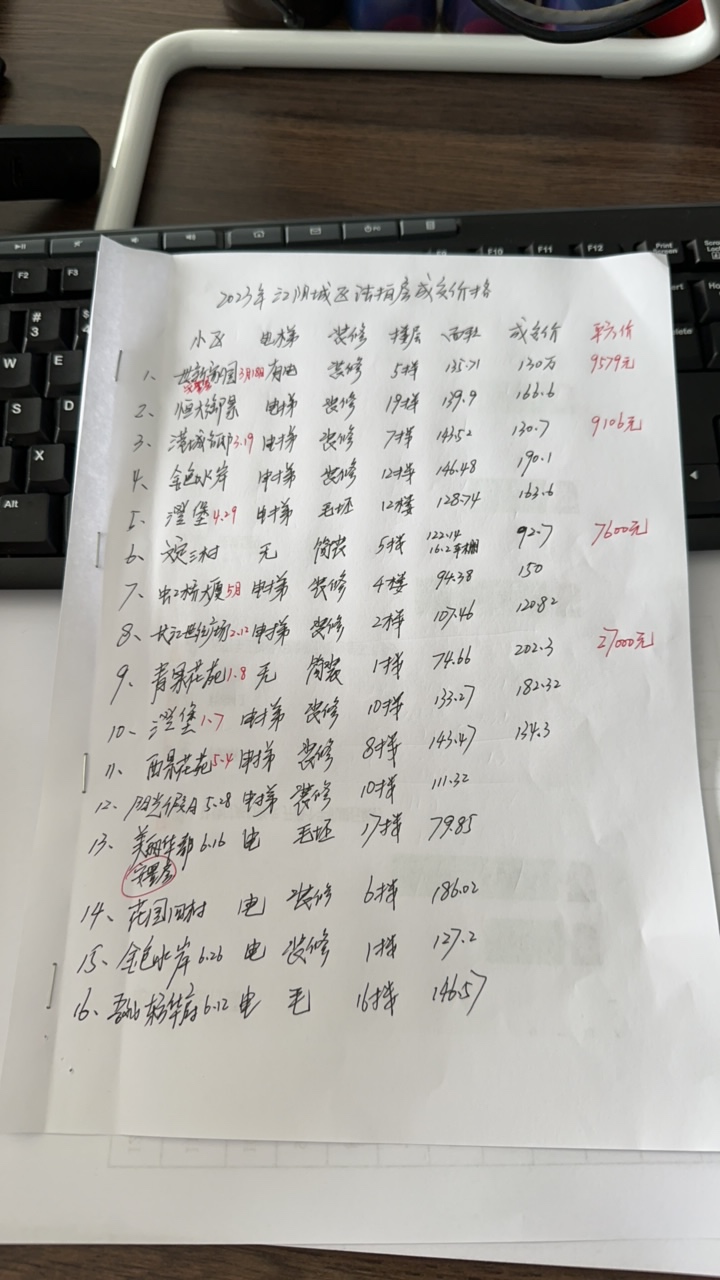 2023年江阴城区法拍房成交价格
小区 电梯 装修 楼层 面积 成交价 单方价
1、世新家园 3月18日 有电 装修 5楼 135.71 130万 9579元
安置房
2、恒大御景 电梯 装修 19楼 139.9 166.6
3、港城首府 3.19 电梯 装修 7楼 143.52 130.7 9106元
4、金色水岸 电梯 装修 12楼 146.48 190.1
5、澄堡 4.29 电梯 毛坯 12楼 128.74 163.6
6、三村 无 简装 5楼 122.14 92.7 7600元
16.2车棚
7、虹桥大厦 5月 电梯 装修 4楼 94.38 150
8、长江世纪广场 2.12 电梯 装修 2楼 107.46 120.82
9、青果花苑 1.8 无 简装 1楼 74.66 202.3 27000元
10、澄堡 1.7 电梯 装修 10楼 133.27 182.32
11、西果花苑 5.4 电梯 装修 8楼 143.47 134.3
12、阳光假日 5.28 电梯 装修 10楼 111.32
13、美丽华都 6.16 电 毛坯 17楼 79.85
安置房
14、花园四村 电 装修 6楼 186.02
15、金色水岸 6.26 电 装修 1楼 127.2
16、 6.12 电 毛 16楼 146.57